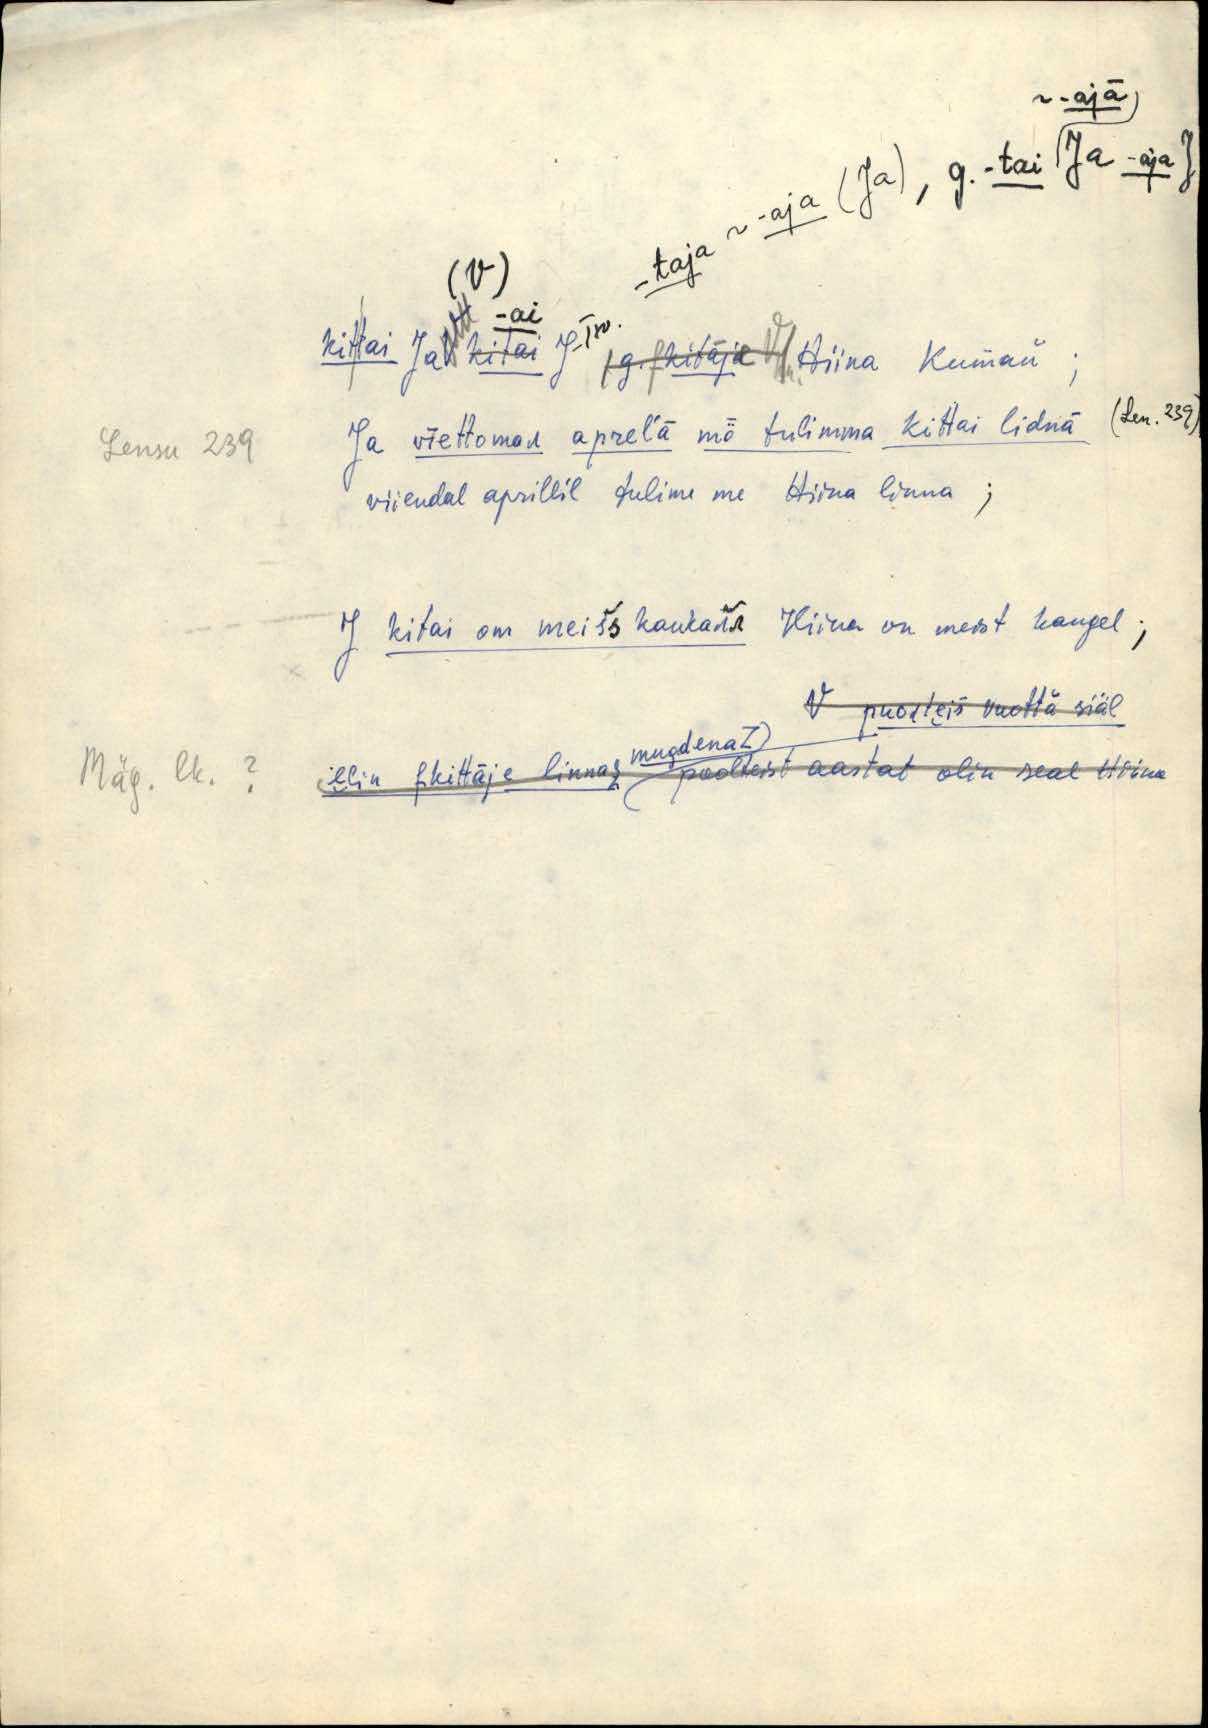 ~ -ajā
-taja ~ -aja (Ja), g. -tai (Ja -aja J
(V)
-ai
kittai Ja kitai J-Tsv. g. kitāje Hiina Китай ;
Lensu 239 Ja vīettomaл aprelā mö tulimma kittai lidnā (Len. 239)
viiendal aprillil tulime me Hiina linna ;
J kitai om meišs kaukaл Hiina on meist kaugel ;
V puoлteiš vuottā siäl
mugdenaz)
Mäg. lk. ? ellin kittāje linnaz poolteist aastat olin seal Hiina